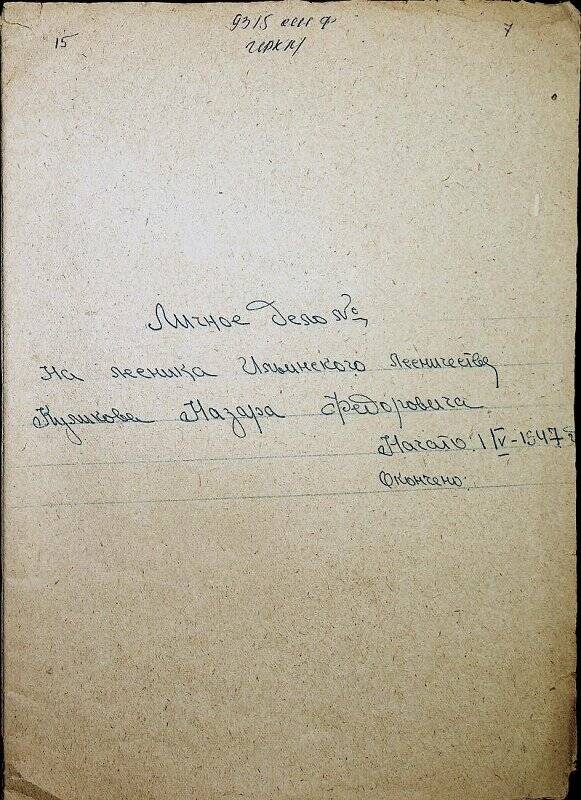 15
7
9315
Личное Дело №
На лесника Ильинского Лесничества
Куликова Назара Федоровича
Начато: 1/IV-1947 г
Окончено: